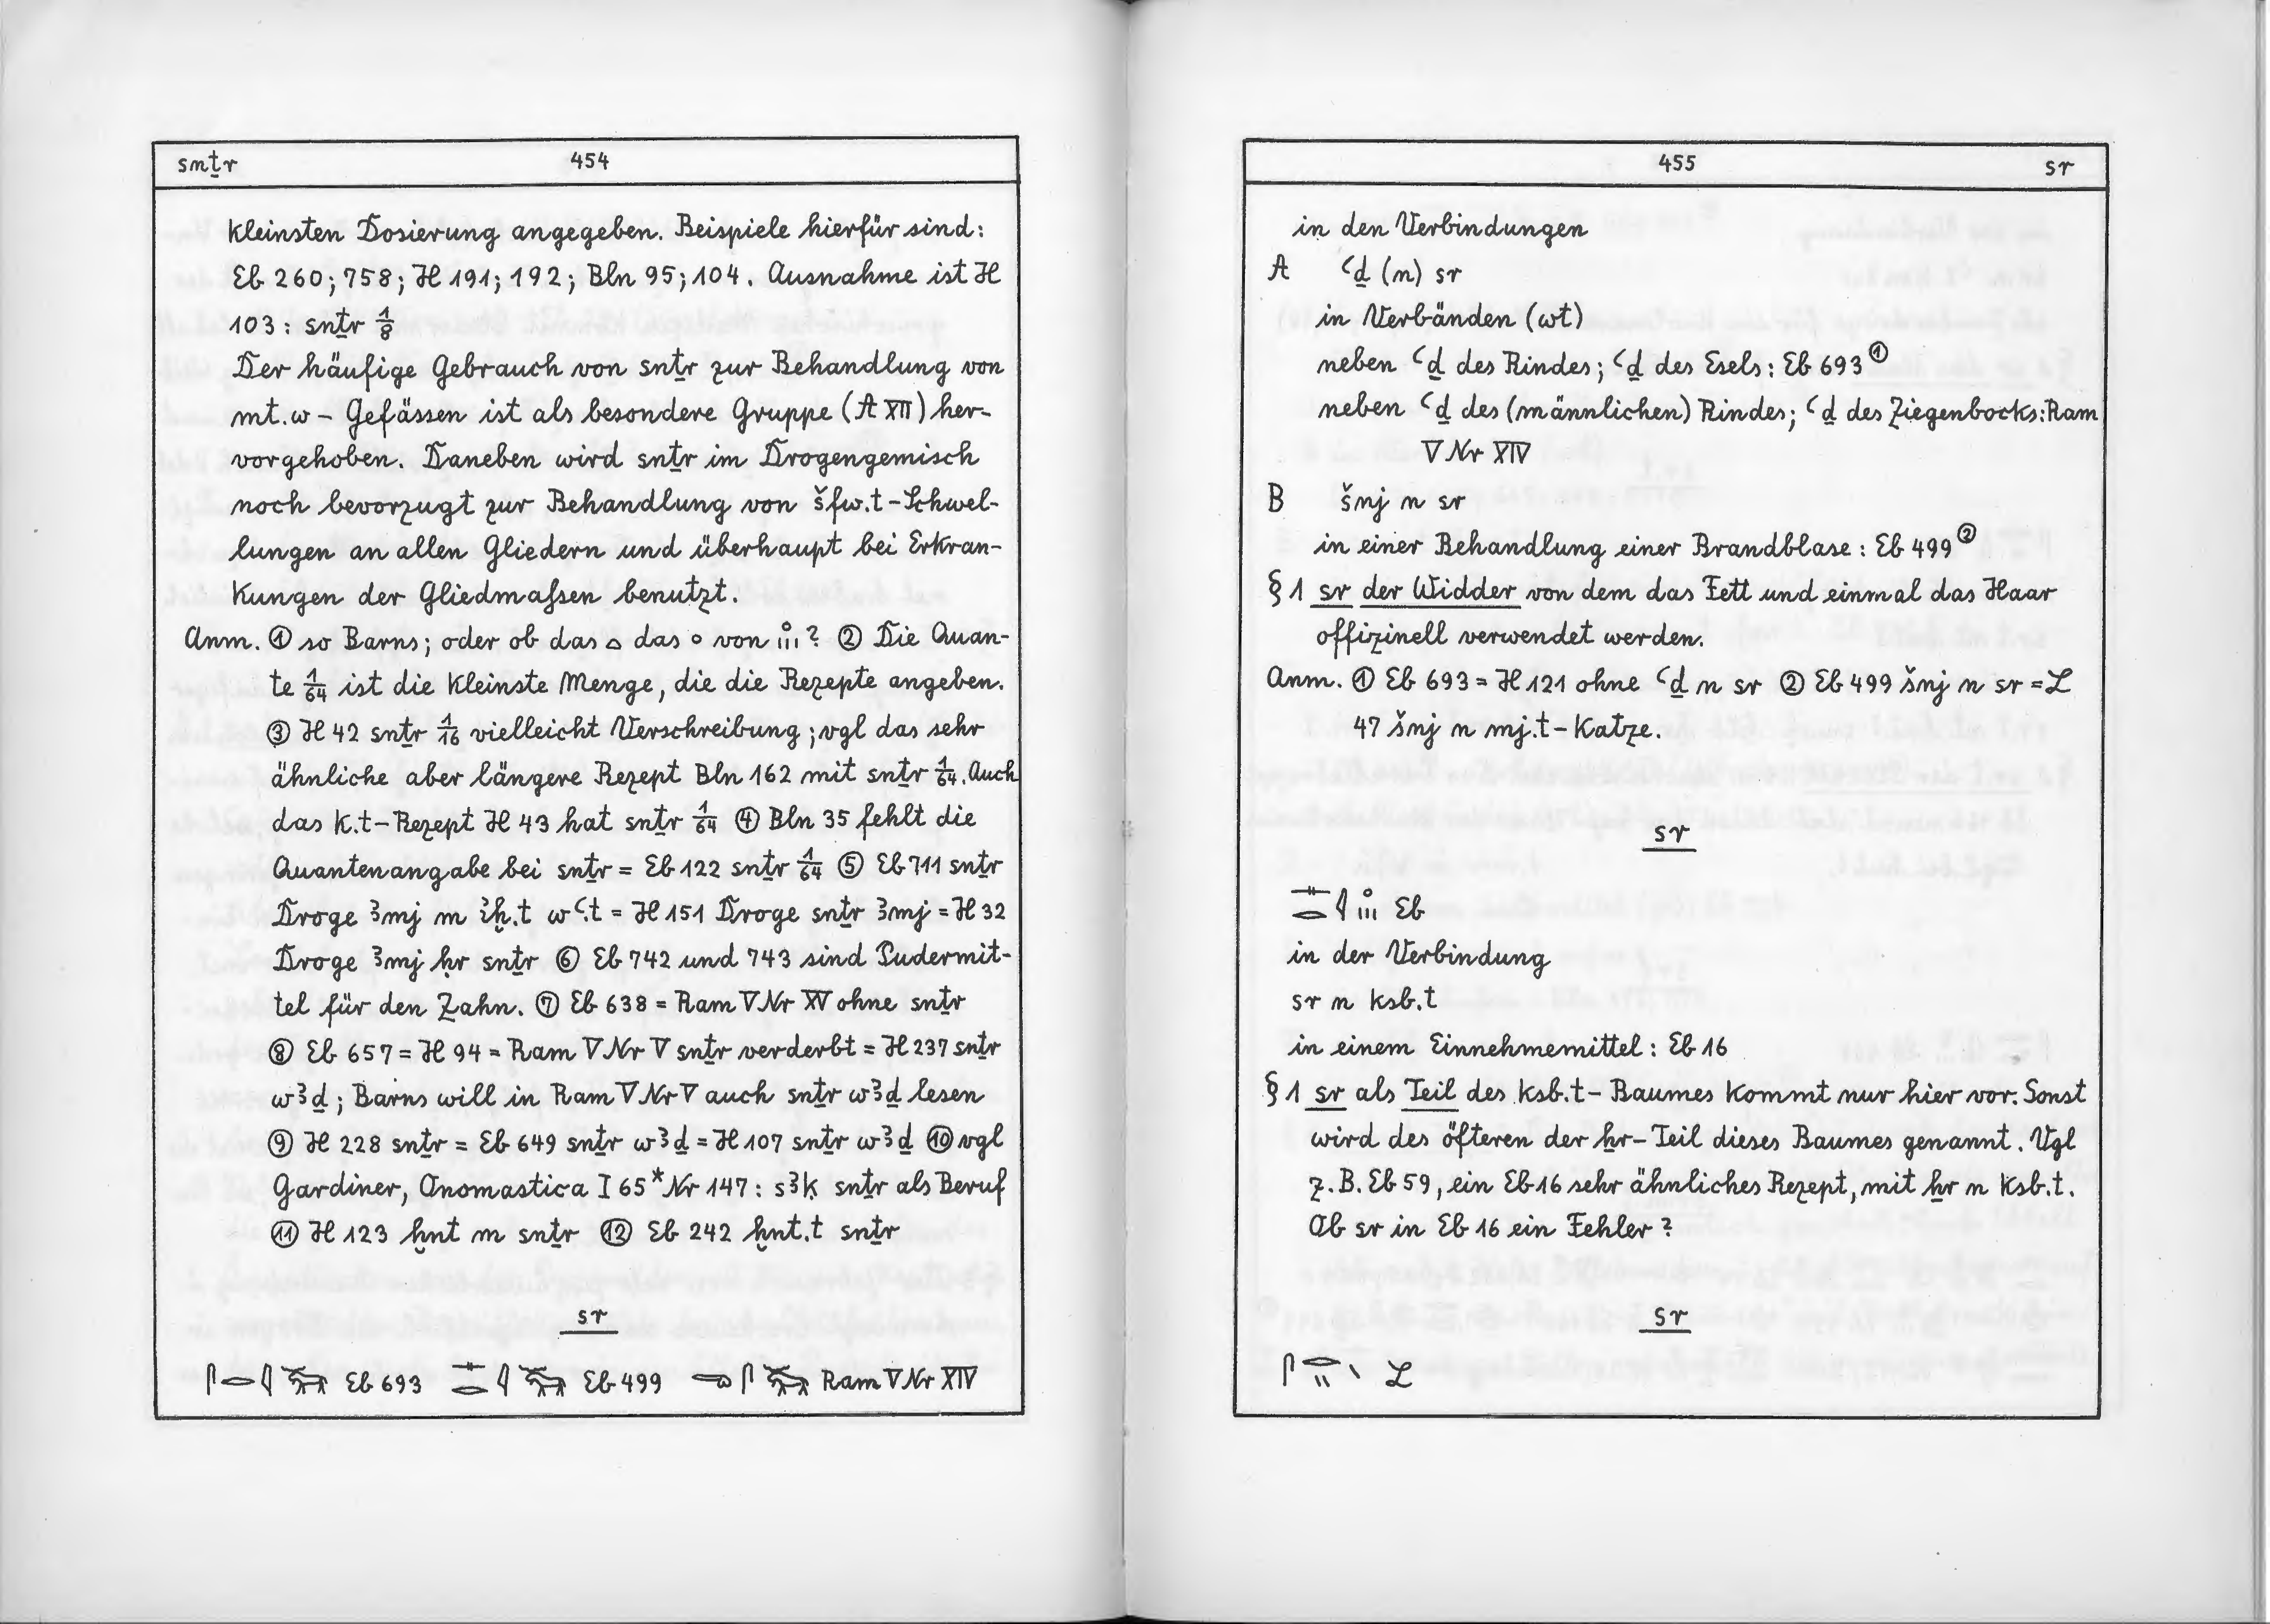 snṯr 454
kleinsten Dosierung angegeben. Beispiele hierfür sind:
Eb 260; 758; H 191; 192; Bln 95; 104. Ausnahme ist H
103: snṯr 1/8
Der häufige Gebrauch von snṯr zur Behandlung von
mt.w - Gefässen ist als besondere Gruppe (A XII) her-
vorgehoben. Daneben wird snṯr im Drogengemisch
noch bevorzugt zur Behandlung von šfw.t - Schwel-
lungen an allen Gliedern und überhaupt bei Erkran-
kungen der Gliedmaßen benutzt.
Anm. ① so Barns; oder ob das 𓏏 das ∘ von 𓈒𓏥? ② Die Quan-
te 1/64 ist die kleinste Menge, die die Rezepte angeben.
③ H 42 snṯr 1/16 vielleicht Verschreibung; vgl das sehr
ähnliche aber längere Rezept Bln 162 mit snṯr 1/64. Auch
das k.t - Rezept H 43 hat snṯr 1/64 ④ Bln 35 fehlt die
Quantenangabe bei snṯr = Eb 122 snṯr 1/64 ⑤ Eb 711 snṯr
Droge ꜣmj m iḫ.t wꜥ.t = H 151 Droge snṯr ꜣmj = H 32
Droge ꜣmj ḥr snṯr ⑥ Eb 742 und 743 sind Pudermit-
tel für den Zahn. ⑦ Eb 638 = Ram V Nr XV ohne snṯr
⑧ Eb 657 = H 94 = Ram V Nr V snṯr verderbt = H 237 snṯr
wꜣḏ; Barns will in Ram V Nr V auch snṯr wꜣḏ lesen
⑨ H 228 snṯr = Eb 649 snṯr wꜣḏ = H 107 snṯr wꜣḏ ⑩ vgl
Gardiner, Onomastica I 65* Nr 147: sꜣḳ snṯr als Beruf
⑪ H 123 ḫnt m snṯr ⑫ Eb 242 ḫnt.t snṯr
sr
𓋴𓂋𓇋𓃝 Eb 693 𓊃𓂋𓇋𓃝 Eb 499 𓂋𓋴𓃝 Ram V Nr XIV
455 sr
in den Verbindungen
A ꜥḏ (n) sr
in Verbänden (wt)
neben ꜥḏ des Rindes; ꜥḏ des Esels: Eb 693 ①
neben ꜥḏ des (männlichen) Rindes; ꜥḏ des Ziegenbocks: Ram
V Nr XIV
B šnj n sr
in einer Behandlung einer Brandblase: Eb 499 ②
§ 1 sr der Widder von dem das Fett und einmal das Haar
offizinell verwendet werden.
Anm. ① Eb 693 = H 121 ohne ꜥḏ n sr ② Eb 499 šnj n sr = L
47 šnj n mj.t - Katze.
sr
𓊃𓂋𓇋𓈒𓏥 Eb
in der Verbindung
sr n ksb.t
in einem Einnehmemittel: Eb 16
§ 1 sr als Teil des ksb.t - Baumes kommt nur hier vor. Sonst
wird des öfteren der ẖr - Teil dieses Baumes genannt. Vgl
z. B. Eb 59, ein Eb 16 sehr ähnliches Rezept, mit ẖr n ksb.t.
Ob sr in Eb 16 ein Fehler?
sr
𓋴𓂋𓏭𓏲 L